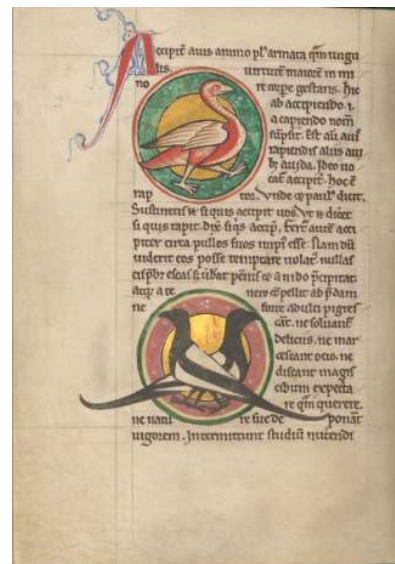 Accipit̄ avis animo pl' armata q̄m ungu
lis. uirtutē maiorē in mi
no re corpe gestans. hic
ab accipiendo. i.
a capiendo nom̄
sūpsit. Est aū auis
rapiendis aliis aui
b; auida. Ideo uo
cat̄ accipit̄. hoc ē
rap tor. Vnde & paul' dicit.
Sustinetis eī si quis accipit uos. Vt eī dicet
si quis rapit. dix̄ siq̄s accip̄. fert̄ aut̄ acci
piter circa pullos suos impi' esse. Nam dū
uiderit eos posse temptare uolat'. nullas
eis p̄bet escas s; ūbat pēnis & a nido p̄cipitat.
atq; a te nero cōpellit ad p̄dam
ne forte adulti pigres
cāt. ne soluant̄
deliciis. ne mar
cescant ocio. ne
discant magis
cibum expecta
re q̄m querere.
ne natu re sue de ponāt
uigorem. Intermittunt studiū nutriendi